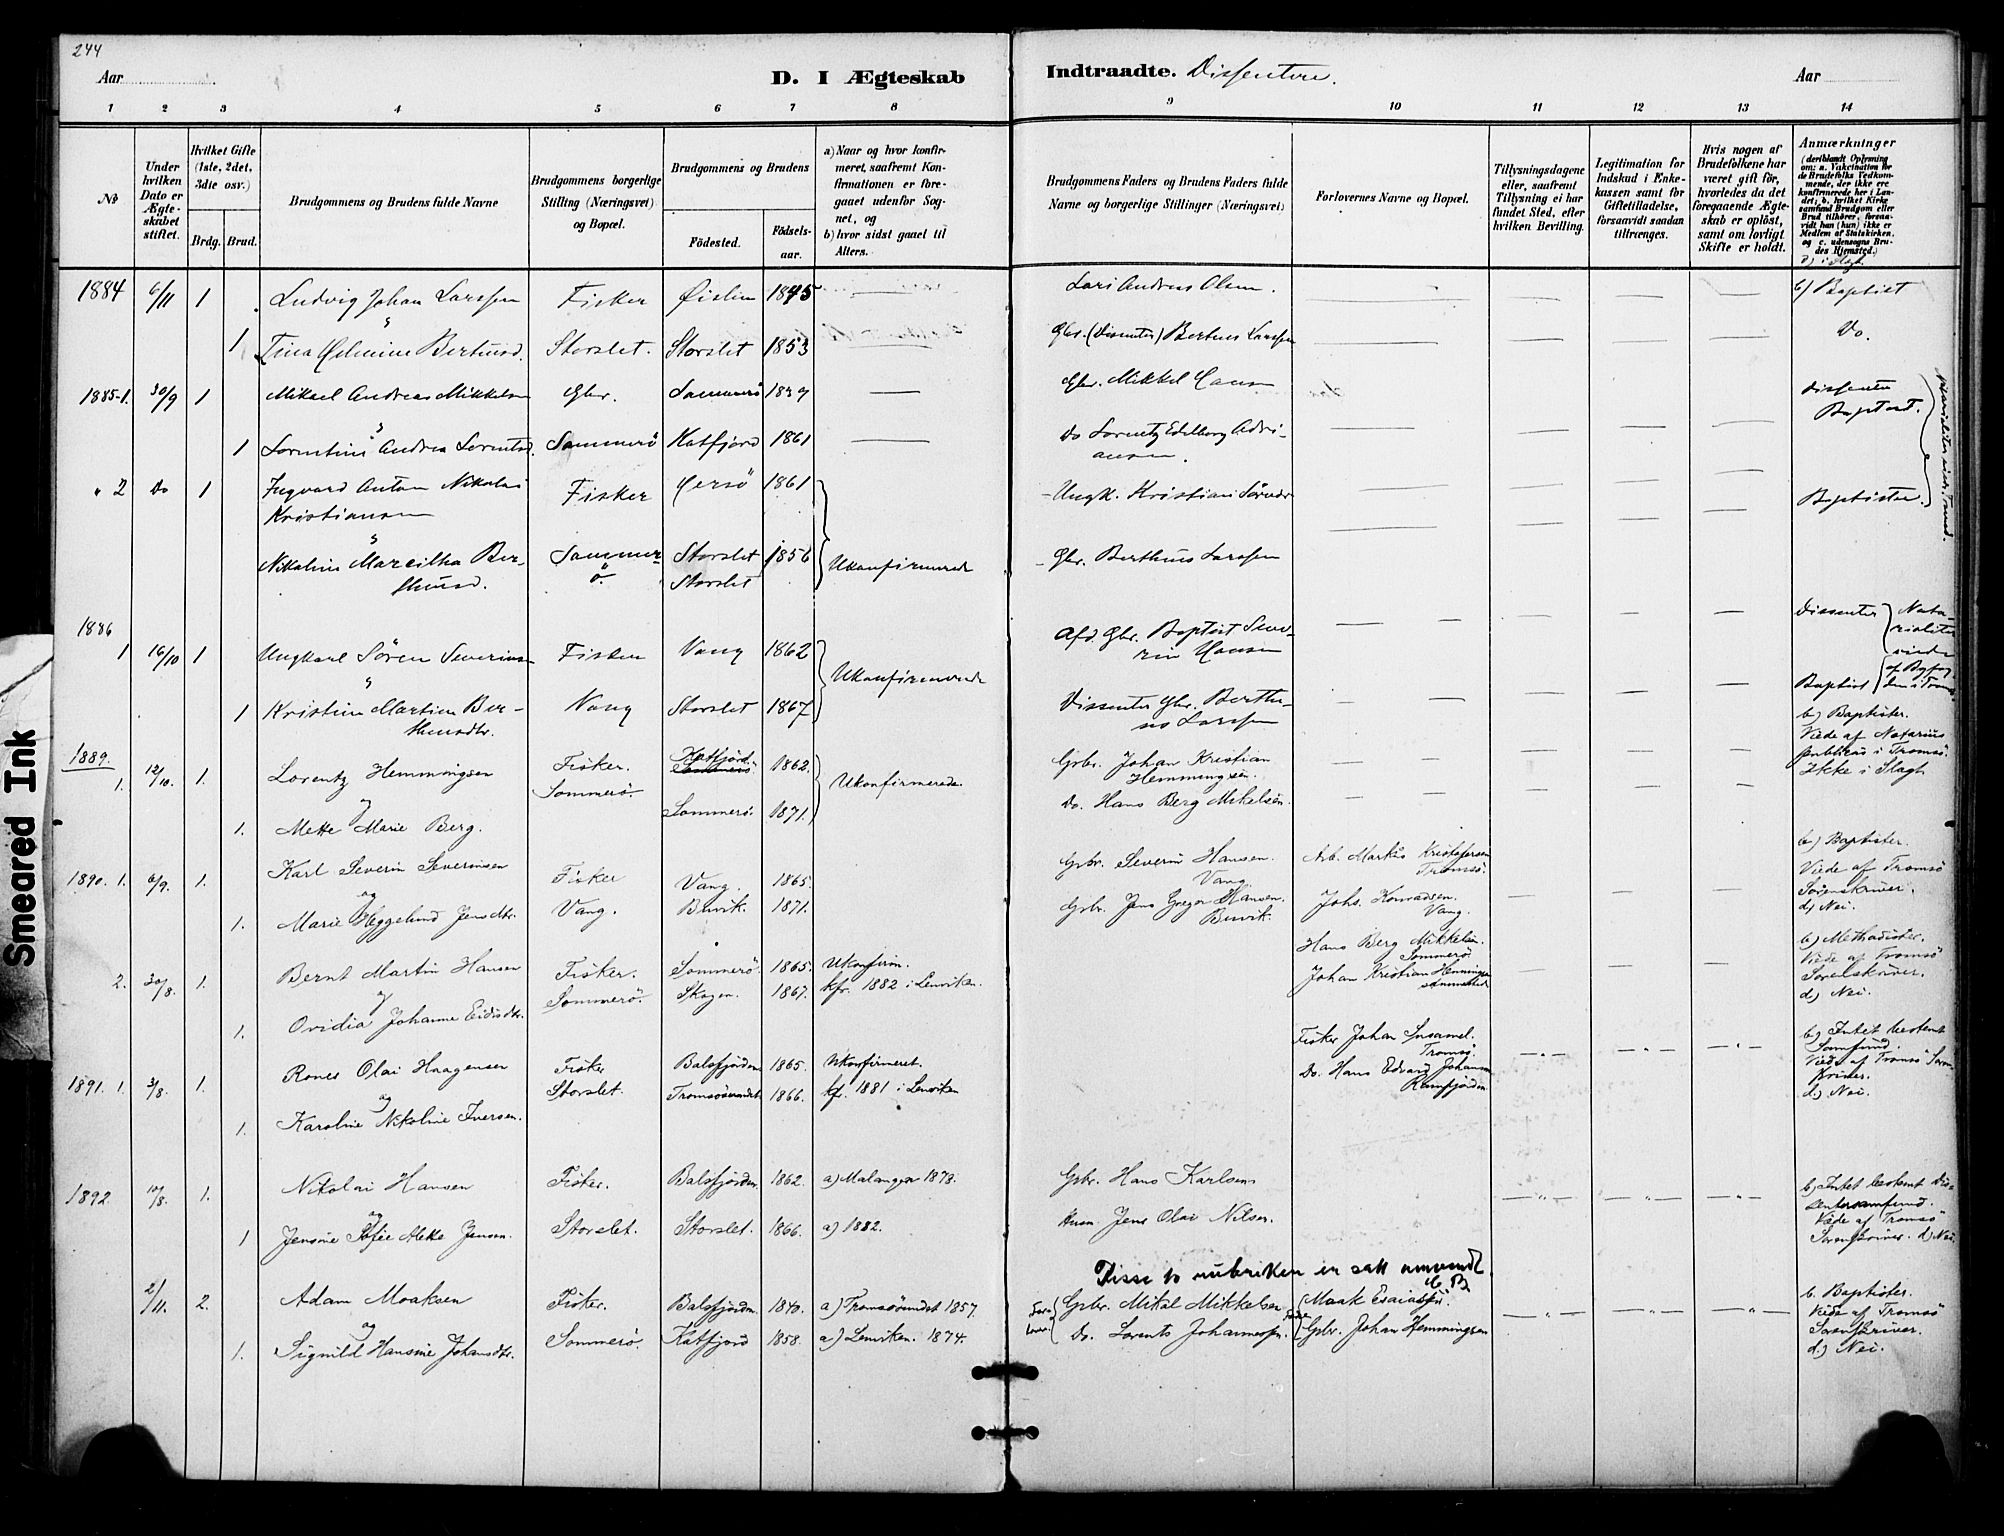 244
Aar
D. I Ægteskab Indtraadte. Dissentere.
Aar
1 2 3 4 5 6 7 8 9 10 11 12 13 14
No
Under hvilken Dato er Ægteskabet stiftet.
Hvilket Gifte (1ste, 2det, 3die osv.)
Brdg. Brud.
Brudgommens og Brudens fulde Navne
Brudgommens borgerlige Stilling (Næringsvei) og Bopæl.
Brudgommens og Brudens
Fødested. Fødselsaar.
a) Naar og hvor konfirmeret, saafremt Konfirmationen er foregaaet udenfor Sognet, og
b) hvor sidst gaaet til Alters.
Brudgommens Faders og Brudens Faders fulde Navne og borgerlige Stillinger (Næringsvei)
Forlovernes Navne og Bopæl.
Tillysningsdagene eller, saafremt Tillysning ei har fundet Sted, efter hvilken Bevilling.
Legitimation for Indskud i Enkekassen samt for Giftetilladelse, forsaavidt saadan tiltrænges.
Hvis nogen af Brudefolkene har været gift før, hvorledes da det foregaaende Ægteskab er opløst, samt om lovligt Skifte er holdt.
Anmærkninger (deriblandt Oplysning om: a. Vakcination for de Brudefolks Vedkommende, der ikke ere konfirmerede her i Landet; b. hvilket Kirkesamfund Brudgom eller Brud tilhører, forsaavidt han (hun) ikke er Medlem af Statskirken, og c. udensogns Brudes Hjemsted.)
1884 6/11 1 Ludvig Johan Larssen Fisker 1845 Lars Andreas Olsen. b) Baptist
1 Bertusd. Storslet. Storslet 1853 Gbr. (Dissenter) Bertus Larssen Do.
1885-1. 30/9 1 Mikael Andreas Mikkelsen Gbr. Sommerö 1839 Gbr. Mikkel Hansen Dissenter Baptist.
1 Andrea Lorentsd. Sommerö Katfjord 1861 Do Lorentz Edelberg Adriansen.
" 2 Do 1 Ingvard Anton Nikolai Kristiansen Fisker 1861 Ungk. Kristian Baptister
Nikoline Berthusd. Sommerö Storslet Storslet 1856 Ukonfirmerede Gbr. Berthus Larssen
1886
1 16/10 1 Ungkarl Sören Severinsen Fisker Vang 1862 Ukonfirmerede Afd. Gbr. Baptist Severin Hansen Dissenter
1 Kristine Martine Berthusdtr. Vang Storslet 1867 Dissenter Gbr. Berthus Larssen Baptist
1889.
1. 12/10. 1. Lorentz Hemmingsen Fisker. Katfjord Sommerø 1862. Ukonfirmerede. Grbr. Johan Kristian Hemmingsen. b) Baptister. Viede af Notarius publicus i Tromsø. Ikke i Slægt
og
1. Mette Marie Berg. Sommerø. Sommerø. 1871. Do. Hans Berg Mikelsen.
1890. 1. 6/9. 1. Karl Severin Severinsen Fisker Vang. 1865. Gpbr. Severin Hansen. Vang. Arb. Markus Kristofersen Tromsø. b) Baptister. Viede af Tromsø Sorenskriver. d) Nei.
og
1. Marie Heggelund Jensdtr. Vang. Buvik. 1871. Gpbr. Jens Gregor Hansen. Buvik. Johs. Konradsen. Vang.
2. 30/8. 1. Bernt Martin Hansen Fisker. Sommerø. 1865. Ukonfirm. Hans Berg Mikkelsen. Sommerø b) Methodister. Viede af Tromsø Sorenskriver. d.) Nei.
og
1. Ovidia Johanne Eidisdtr. Sommerø. Skogen. 1867. kfr. 1882 i Lenviken. Johan Kristian Hemmingsen
1891. 1. 3/8. 1. Olai Haagensen Fisker Balsfjorden 1865. Ukonfirmeret. Fisker Johan Tromsø. b) Intet bestemt Samfund. Viede af Tromsø Sorenskriver. d.) Nei.
og
1. Karoline Nikoline Iversen. Storslet. Tromsøsundet 1866. kfr. 1881 i Lenviken Do. Hans Edvard Johansen Ramfjorden
1892. 10/8. 1. Nikolai Hansen Fisker. Balsfjorden. 1862. a) Malangen 1878. Gpbr. Hans Karlsen b) Intet bestemt Dissentersamfund. Viede af Tromsø Sorenskriver. d) Nei.
og
1 Jensine Sofie Jensen. Storslet. Storslet. 1866. a) 1882. Husm Jens Olai Nilsen.
Disse to rubriken er satt omvendt.
2/11. 2. Adam Moaksen Fisker. Balsfjorden. 1840. a) Tromsøsundet 1857. Gpbr. Mikal Mikkelsen Moak Esaiassen b. Baptister. Viede af Tromsø Sorenskriver. d.) Nei.
og
1. Signild Hansine Johansdtr. Sommerø. Katfjord 1858. a) Lenviken. 1874. Do. Lorents Johannessen. Gpbr. Johan Hemmingsen
Smeared Ink